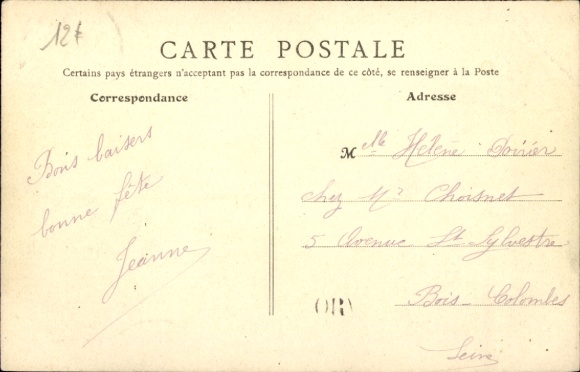 12€
CARTE POSTALE
Certains pays étrangers n'acceptant pas la correspondance de ce côté, se renseigner à la Poste
Correspondance
Bons baisers
bonne fête
Jeanne
Adresse
Melle Hélène Poirier
chez Mr Choisnet
5 Avenue St Sylvestre
Bois-Colombes
Seine
(OR)